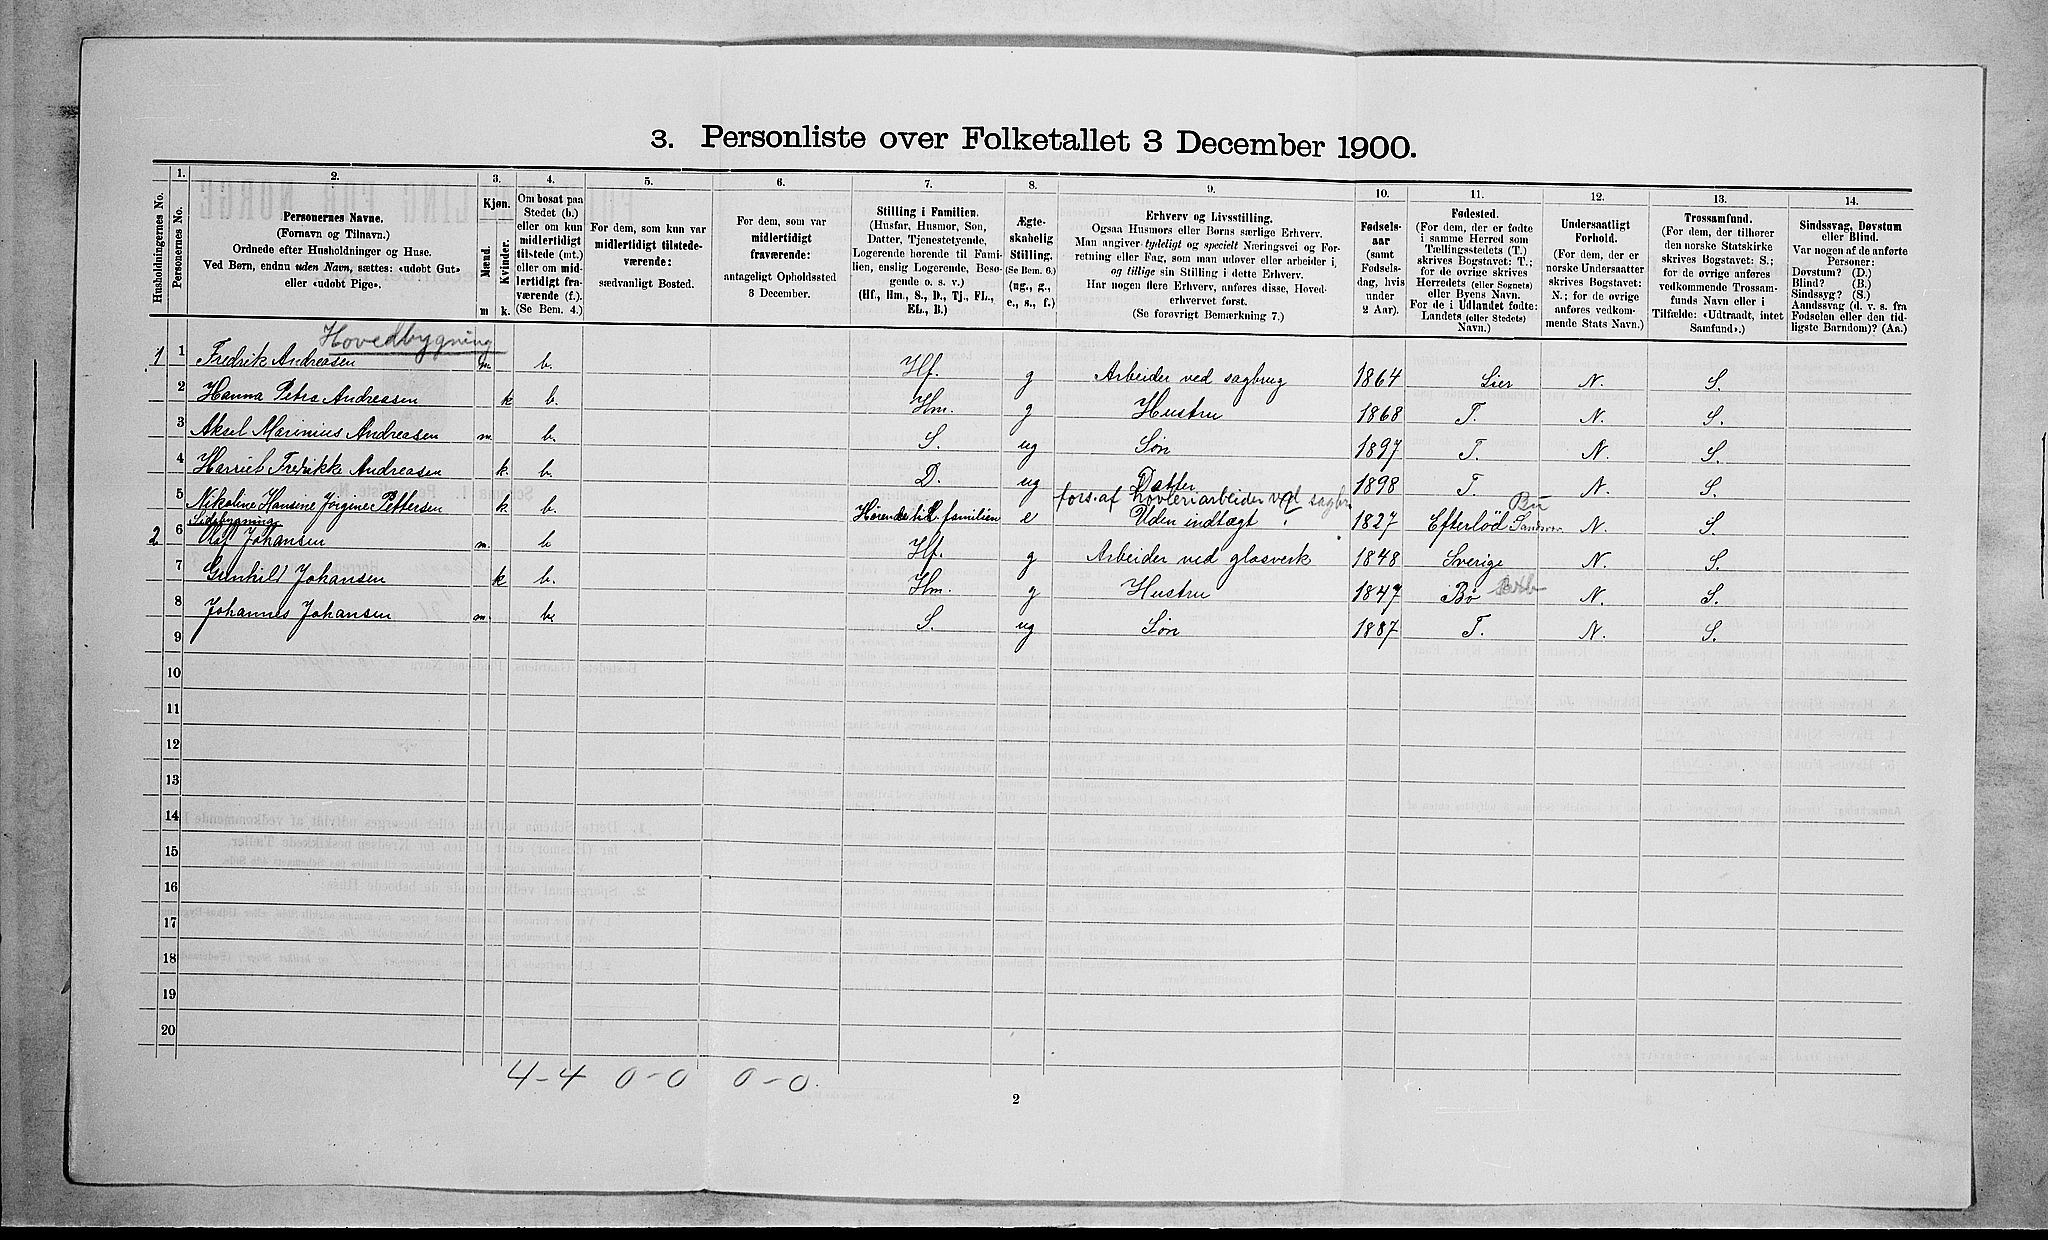 3. Personliste over Folketallet 3 December 1900.
Husholdningernes No.
1.
Personernes No.
2.
Personernes Navne.
(Fornavn og Tilnavn.)
Ordnede efter Husholdninger og Huse.
Ved Børn, endnu uden Navn, sættes: «udøbt Gut»
eller «udøbt Pige».
3.
Kjøn.
Mænd.
Kvinder.
m k.
4.
Om bosat paa
Stedet (b.)
eller om kun
midlertidigt
tilstede (mt.)
eller om mid-
lertidigt fra-
værende (f.).
(Se Bem. 4.)
5.
For dem, som kun var
midlertidigt tilstede-
værende:
sædvanligt Bosted.
6.
For dem, som var
midlertidigt
fraværende:
antageligt Opholdssted
3 December.
7.
Stilling i Familien.
(Husfar, Husmor, Søn,
Datter, Tjenestetyende,
Logerende hørende til Fami-
lien, enslig Logerende, Besø-
gende o. s. v.)
(Hf., Hm., S., D., Tj., FL.,
EL., B.)
8.
Ægte-
skabelig
Stilling.
(Se Bem. 6.)
(ug., g.,
e., s., f.)
9.
Erhverv og Livsstilling.
Ogsaa Husmors eller Børns særlige Erhverv.
Man angiver tydeligt og specielt Næringsvei og For-
retning eller Fag, som man udøver eller arbeider i,
og tillige sin Stilling i dette Erhverv.
Har nogen flere Erhverv, anføres disse, Hoved-
erhvervet først.
(Se forøvrigt Bemærkning 7.)
10.
Fødsels-
aar
(samt
Fødsels-
dag, hvis
under
2 Aar).
11.
Fødested.
(For dem, der er fødte
i samme Herred som
Tællingsstedets (T.)
skrives Bogstavet: T.;
for de øvrige skrives
Herredets (eller Sognets)
eller Byens Navn.
For de i Udlandet fødte:
Landets (eller Stedets)
Navn.)
12.
Undersaatligt
Forhold.
(For dem, der er
norske Undersaatter
skrives Bogstavet:
N.; for de øvrige
anføres vedkom-
mende Stats Navn.)
13.
Trossamfund.
(For dem, der tilhører
den norske Statskirke
skrives Bogstavet: S.;
for de øvrige anføres
vedkommende Trossam-
funds Navn eller i
Tilfælde: «Udtraadt, intet
Samfund».)
14.
Sindssvag, Døvstum
eller Blind.
Var nogen af de anførte
Personer:
Døvstum? (D.)
Blind? (B.)
Sindssyg? (S.)
Aandssvag (d. v. s. fra
Fødselen eller den tid-
ligste Barndom)? (Aa.)
Hovedbygning
1 1 Fredrik Andreasen m. b. Hf. g Arbeider ved sagbrug 1864 Lier N. S.
2 Hanna Petra Andreasen k b. Hm. g Hustru 1868 T. N. S.
3 Aksel Marinius Andreasen m. b. S. ug Søn 1897 T. N. S.
4 Harriet Fredrikke Andreasen k. b. D. ug Datter 1898 T. N. S.
fors. af høvleriarbeider ved sagbr Bu
5 Nikoline Hansine Jørgine Pettersen k b. Hørende til familien e Uden indtægt 1827 Efterlød Sandsvær N. S.
Sidebygning
2 6 Olaf Johansen m. b Hf. g Arbeider ved glasverk 1848 Sverige N. S.
7 Gunhild Johansen k b. Hm. g Hustru 1847 Bø N. S.
8 Johannes Johansen m. b. S. ug Søn 1887 T. N. S.
9
10
11
12
13
14
15
16
17
18
19
20
4-4 0-0 0-0.
2